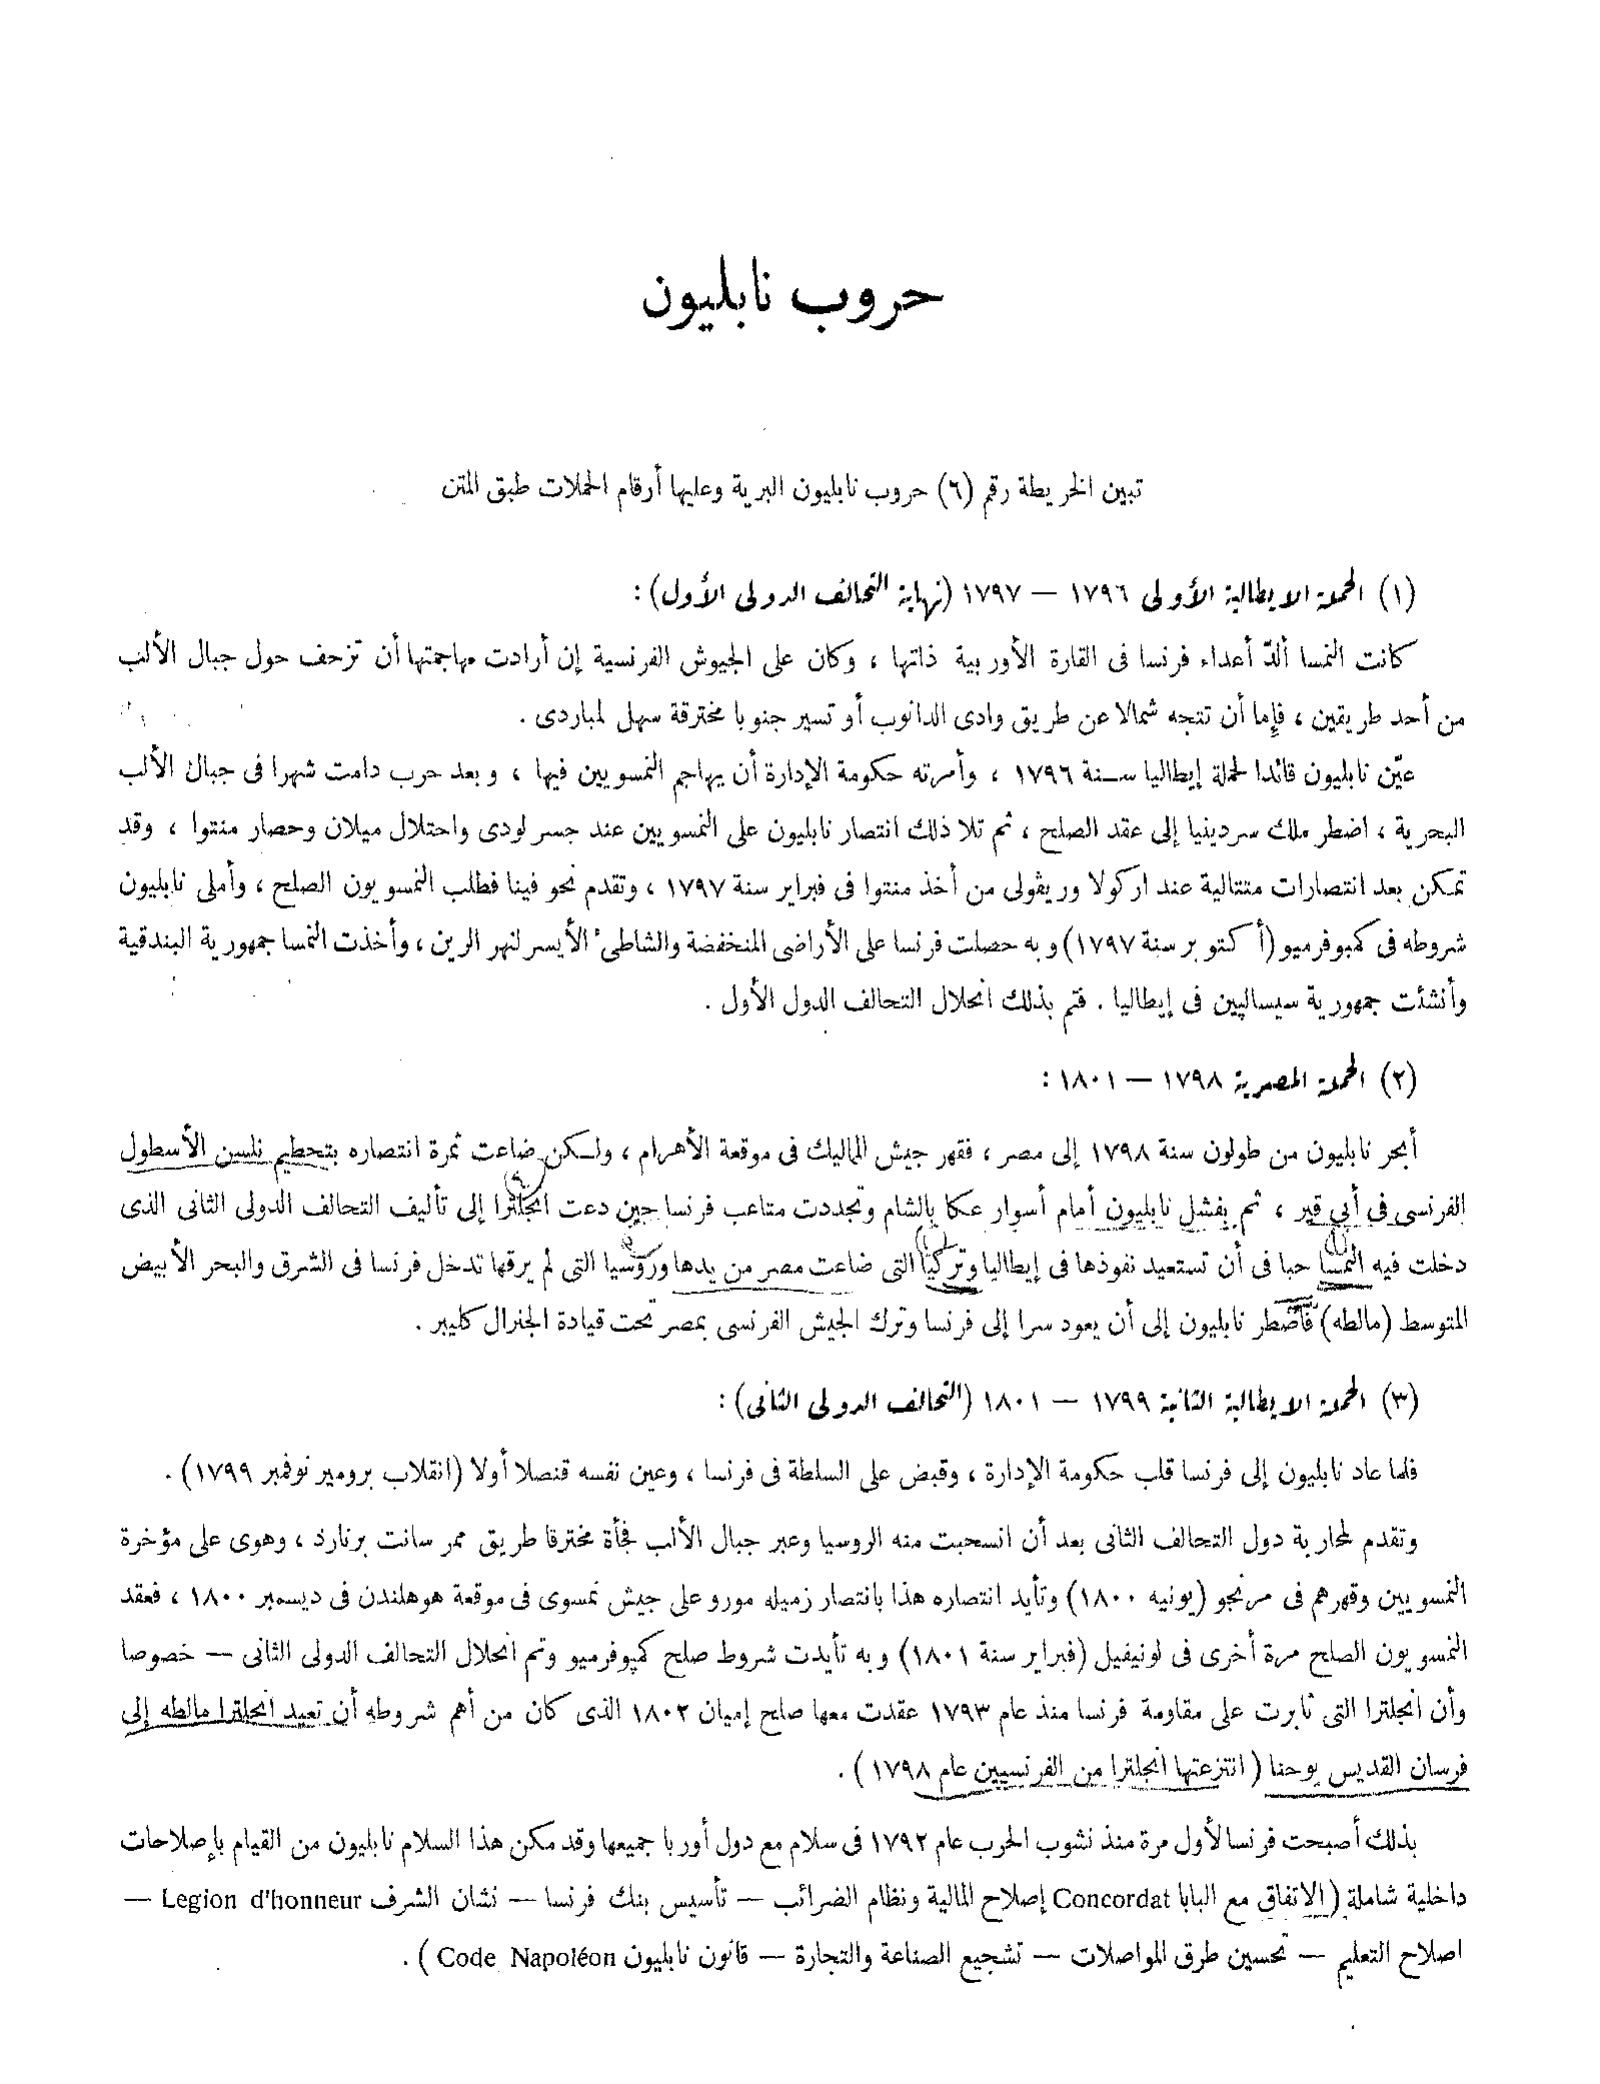 حروب نابليون
تبين الخريطة رقم (٦) حروب نابليون البرية وعليها أرقام الحملات طبق المتن
(١) الحملة الايطالية الأولى ١٧٩٦ — ١٧٩٧ (نهاية التحالف الدولى الأول) :
كانت النمسا ألدّ أعداء فرنسا فى القارة الأوربية ذاتها ، وكان على الجيوش الفرنسية إن أرادت مهاجمتها أن تزحف حول جبال الألب
من أحد طريقين ، فإما أن تتجه شمالا عن طريق وادى الدانوب أو تسير جنوبا مخترقة سهل لمباردى .
عيّن نابليون قائدا لحملة إيطاليا سنة ١٧٩٦ ، وأمرته حكومة الإدارة أن يهاجم النمسويين فيها ، وبعد حرب دامت شهرا فى جبال الألب
البحرية ، اضطر ملك سردينيا إلى عقد الصلح ، ثم تلا ذلك انتصار نابليون على النمسويين عند جسر لودى واحتلال ميلان وحصار منتوا ، وقد
تمكن بعد انتصارات متتالية عند اركولا وريڤولى من أخذ منتوا فى فبراير سنة ١٧٩٧ ، وتقدم نحو فينا فطلب النمسويون الصلح ، وأملى نابليون
شروطه فى كمبوفرميو (أكتوبر سنة ١٧٩٧) وبه حصلت فرنسا على الأراضى المنخفضة والشاطئ الأيسر لنهر الرين ، وأخذت النمسا جمهورية البندقية
وأنشئت جمهورية سيسالپين فى إيطاليا . فتم بذلك انحلال التحالف الدول الأول .
(٢) الحملة المصرية ١٧٩٨ — ١٨٠١ :
أبحر نابليون من طولون سنة ١٧٩٨ إلى مصر ، فقهر جيش المماليك فى موقعة الأهرام ، ولكن ضاعت ثمرة انتصاره بتحطيم نلسن الأسطول
الفرنسى فى أبى قير ، ثم بفشل نابليون أمام أسوار عكا بالشام وتجددت متاعب فرنسا حين دعت انجلترا إلى تأليف التحالف الدولى الثانى الذى
دخلت فيه النمسا حبا فى أن تستعيد نفوذها فى إيطاليا وتركيا التى ضاعت مصر من يدها وروسيا التى لم يرقها تدخل فرنسا فى الشرق والبحر الأبيض
المتوسط (مالطه) فاضطر نابليون إلى أن يعود سرا إلى فرنسا وترك الجيش الفرنسى بمصر تحت قيادة الجنرال كليبر .
(٣) الحملة الايطالية الثانية ١٧٩٩ — ١٨٠١ (التحالف الدولى الثانى) :
فلما عاد نابليون إلى فرنسا قلب حكومة الإدارة ، وقبض على السلطة فى فرنسا ، وعين نفسه قنصلا أولا (انقلاب برومير نوفمبر ١٧٩٩) .
وتقدم لمحاربة دول التحالف الثانى بعد أن انسحبت منه الروسيا وعبر جبال الألب فجأة مخترقا طريق ممر سانت برنارد ، وهوى على مؤخرة
النمسويين وقهرهم فى مرنجو (يونيه ١٨٠٠) وتأيد انتصاره هذا بانتصار زميله مورو على جيش نمسوى فى موقعة هوهلندن فى ديسمبر ١٨٠٠ ، فعقد
النمسويون الصلح مرة أخرى فى لونيفيل (فبراير سنة ١٨٠١) وبه تأيدت شروط صلح كمپوفرميو وتم انحلال التحالف الدولى الثانى — خصوصا
وأن انجلترا التى ثابرت على مقاومة فرنسا منذ عام ١٧٩٣ عقدت معها صلح إميان ١٨٠٢ الذى كان من أهم شروطه أن تعيد انجلترا مالطه إلى
فرسان القديس يوحنا (انتزعتها انجلترا من الفرنسيين عام ١٧٩٨) .
بذلك أصبحت فرنسا لأول مرة منذ نشوب الحرب عام ١٧٩٢ فى سلام مع دول أوربا جميعها وقد مكن هذا السلام نابليون من القيام بإصلاحات
داخلية شاملة (الاتفاق مع البابا Concordat إصلاح المالية ونظام الضرائب — تأسيس بنك فرنسا — نشان الشرف Legion d'honneur —
اصلاح التعليم — تحسين طرق المواصلات — تشجيع الصناعة والتجارة — قانون نابليون Code Napoléon ) .